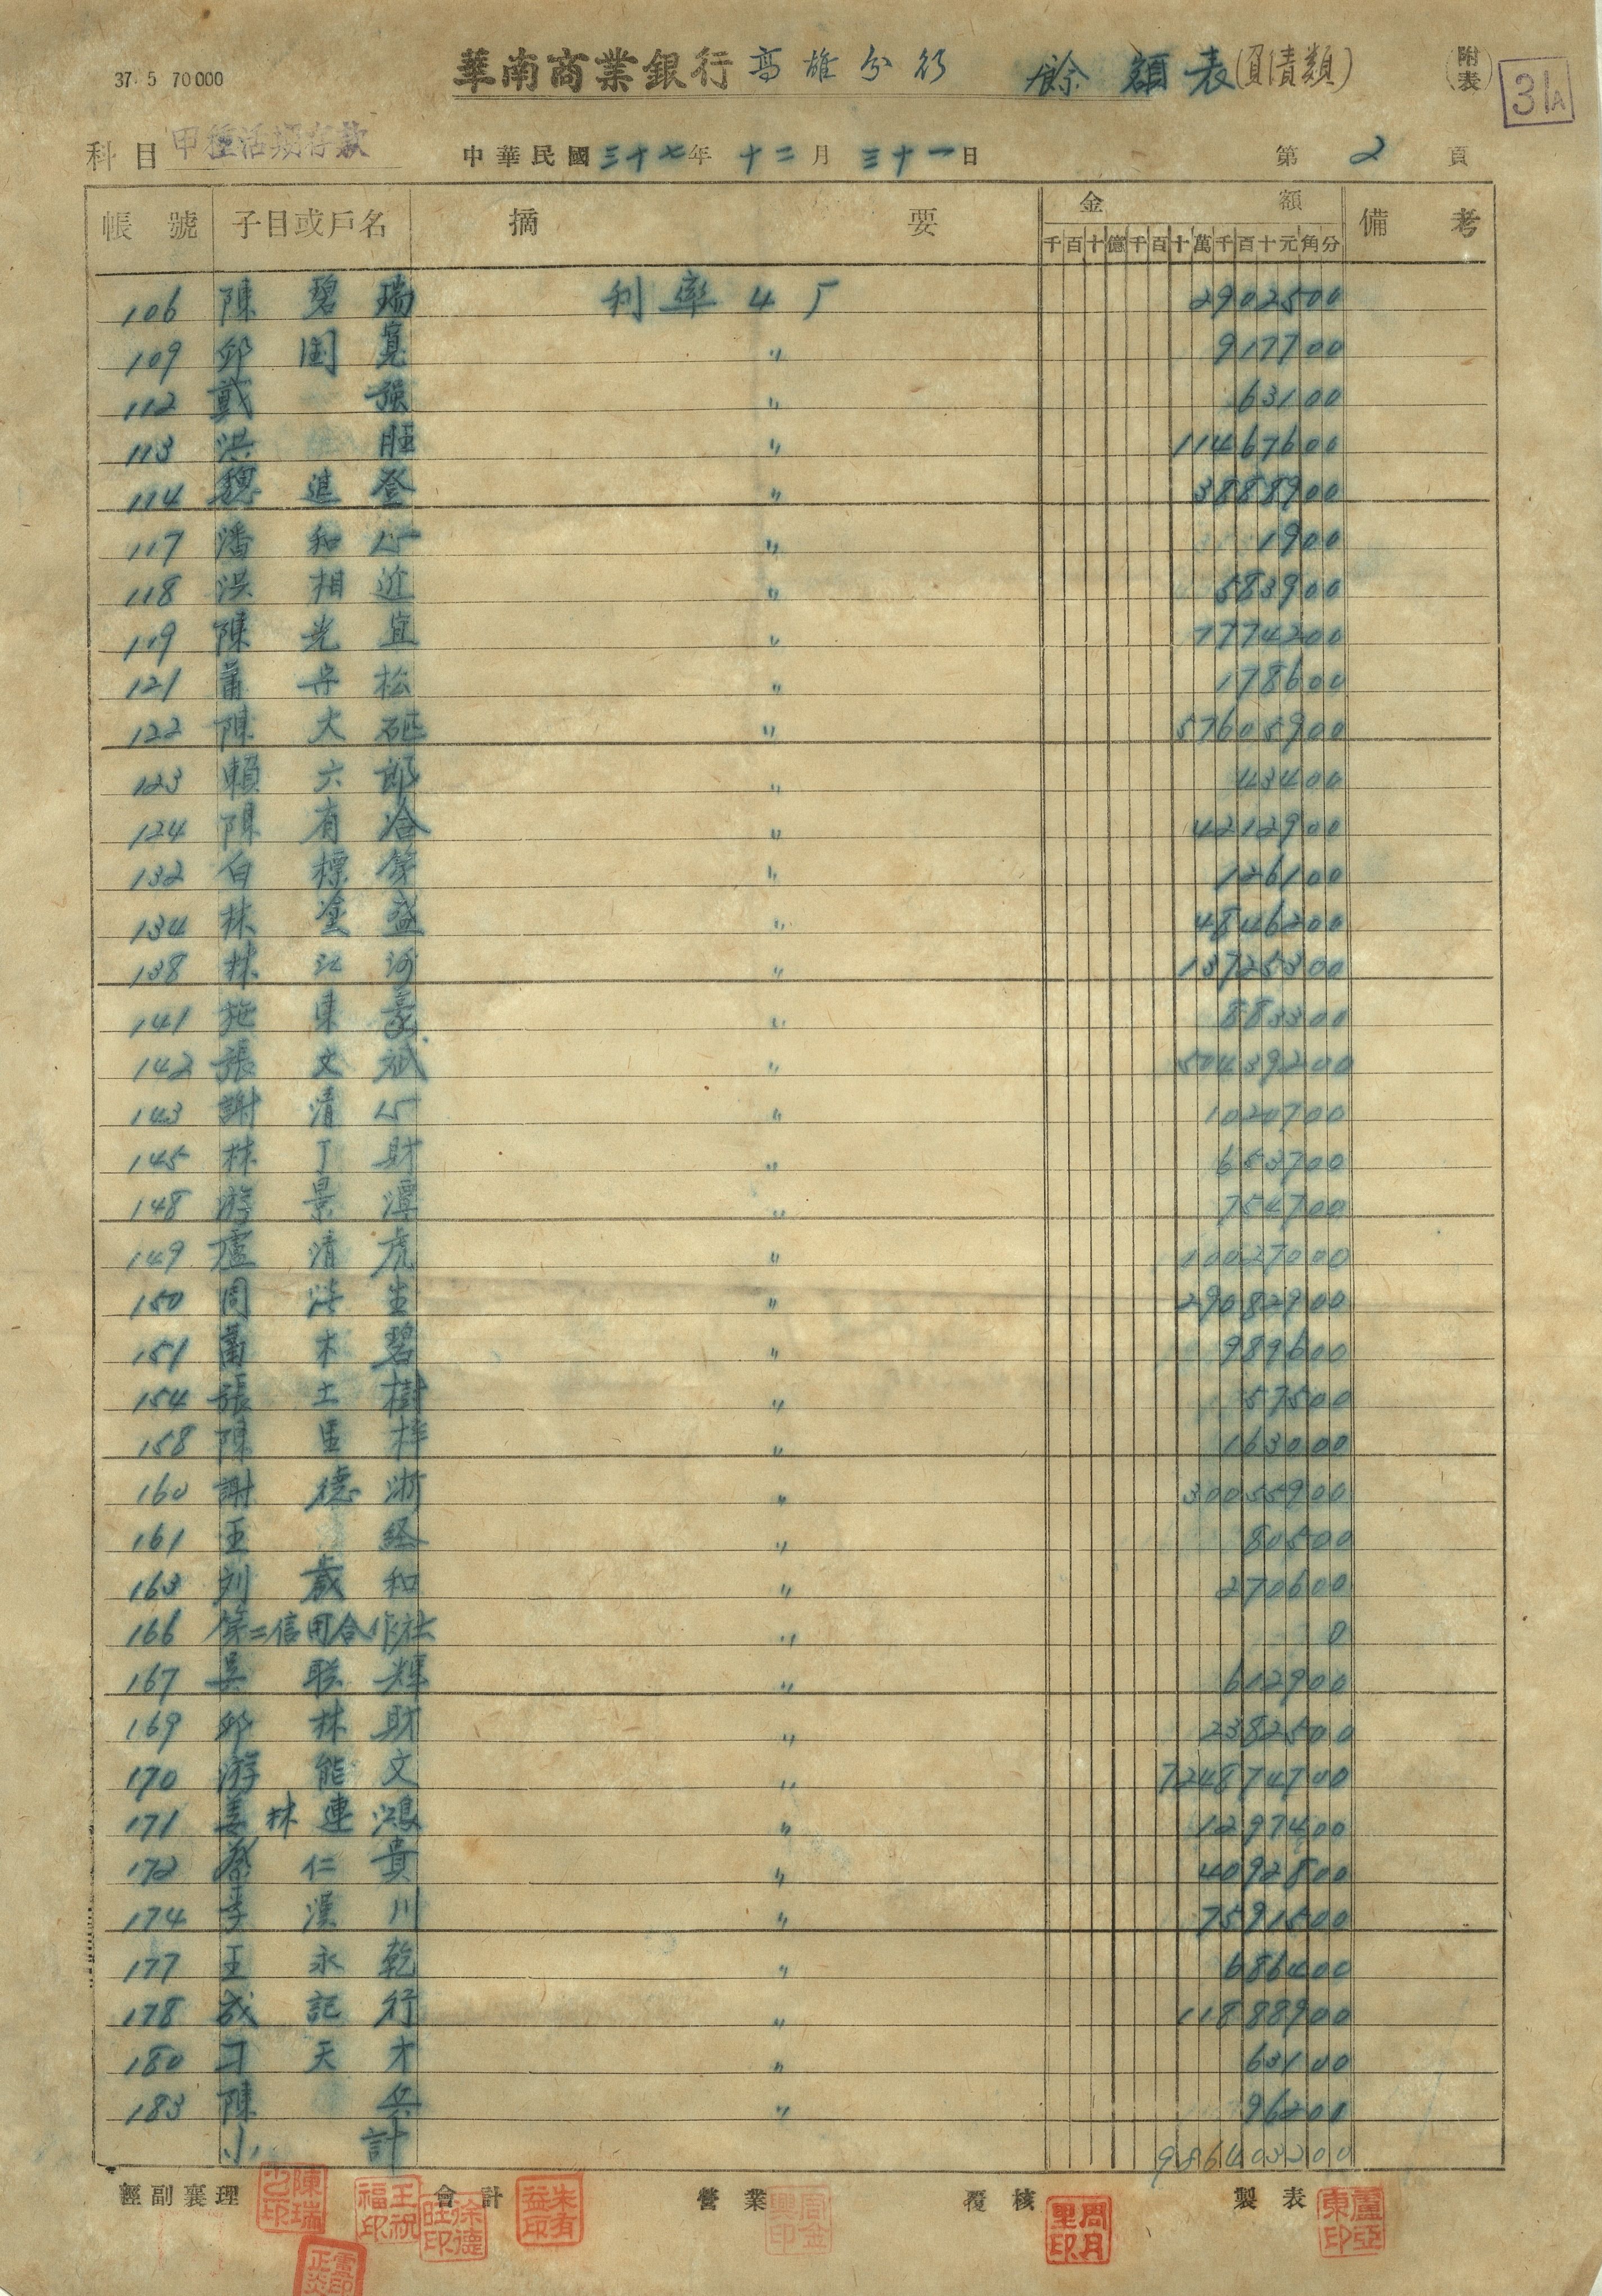 37. 5 70000
華南商業銀行 高雄分行 餘額表(負債類)
(附表)
31A
科目 甲種活期存款 中華民國三十七年十二月三十一日 第2頁
帳號 子目或戶名 摘要 金額 備考
千百十億千百十萬千百十元角分
106 陳碧瑞 利率45 2902500
109 邱国寬 〃 917700
112 戴強 〃 63100
113 洪旺 〃 11467600
114 魏進登 〃 3888900
117 潘和 〃 1900
118 洪相近 〃 583900
119 陳光宜 〃 7774200
121 舟松 〃 178600
122 陳大 〃 57605900
123 賴六郎 〃 43400
124 陳有 〃 4212900
132 白標第 〃 126100
134 林塗盛 〃 4846200
138 林江河 〃 13725300
141 施東豪 〃 883300
142 張文祇 〃 50439200
143 謝清 〃 1020700
145 林丁財 〃 653700
148 游景潭 〃 754700
149 盧清虎 〃 10027000
150 周生 〃 29082900
151 木碧 〃 989600
154 張土樹 〃 57500
158 陳 〃 163000
160 謝德浙 〃 30055900
161 王経 〃 80500
163 刘歲和 〃 270600
166 第二信用合作社 〃 0
167 吳联輝 〃 612900
169 邱林財 〃 2382500
170 游能文 〃 724874700
171 姜林連鴻 〃 1297400
172 蔡仁貴 〃 4092800
174 李漢川 〃 7591500
177 王永乾 〃 686400
178 成記行 〃 11888900
180 刁天才 〃 63100
183 陳兵 〃 96200
小計 986403200
經副襄理 會計 營業 覆核 製表
陳瑞 王祝福印 徐德旺印 朱有益印 周金興印 周月里印 蘆亞東印